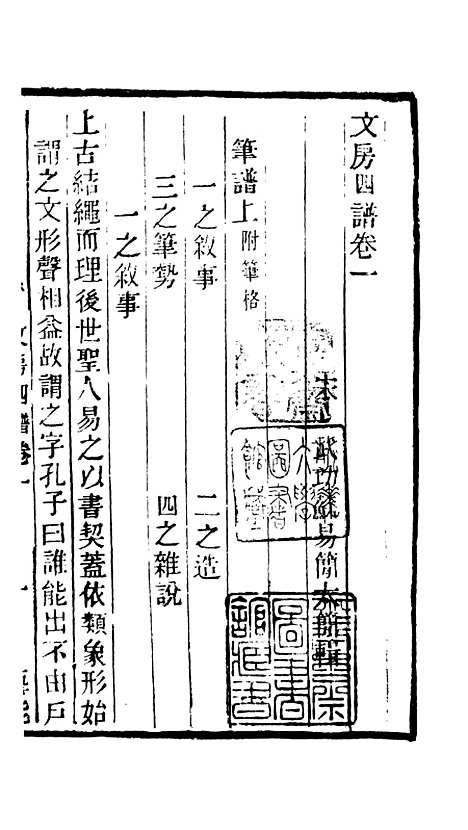 文房四譜卷一
宋 武功蘇易簡太簡輯
筆譜上附筆格
一之敘事 二之造
三之筆勢 四之雜說
一之敘事
上古結繩而理後世聖人易之以書契蓋依類象形始
謂之文形聲相益故謂之字孔子曰誰能出不由戶
文房四譜卷一 一